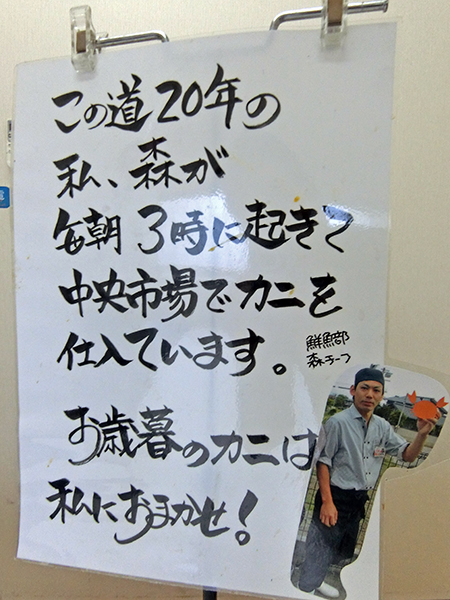 この道20年の
私、森が
毎朝3時に起きて
中央市場でカニを
仕入ています。
鮮魚部
森チーフ
お歳暮のカニは
私におまかせ!